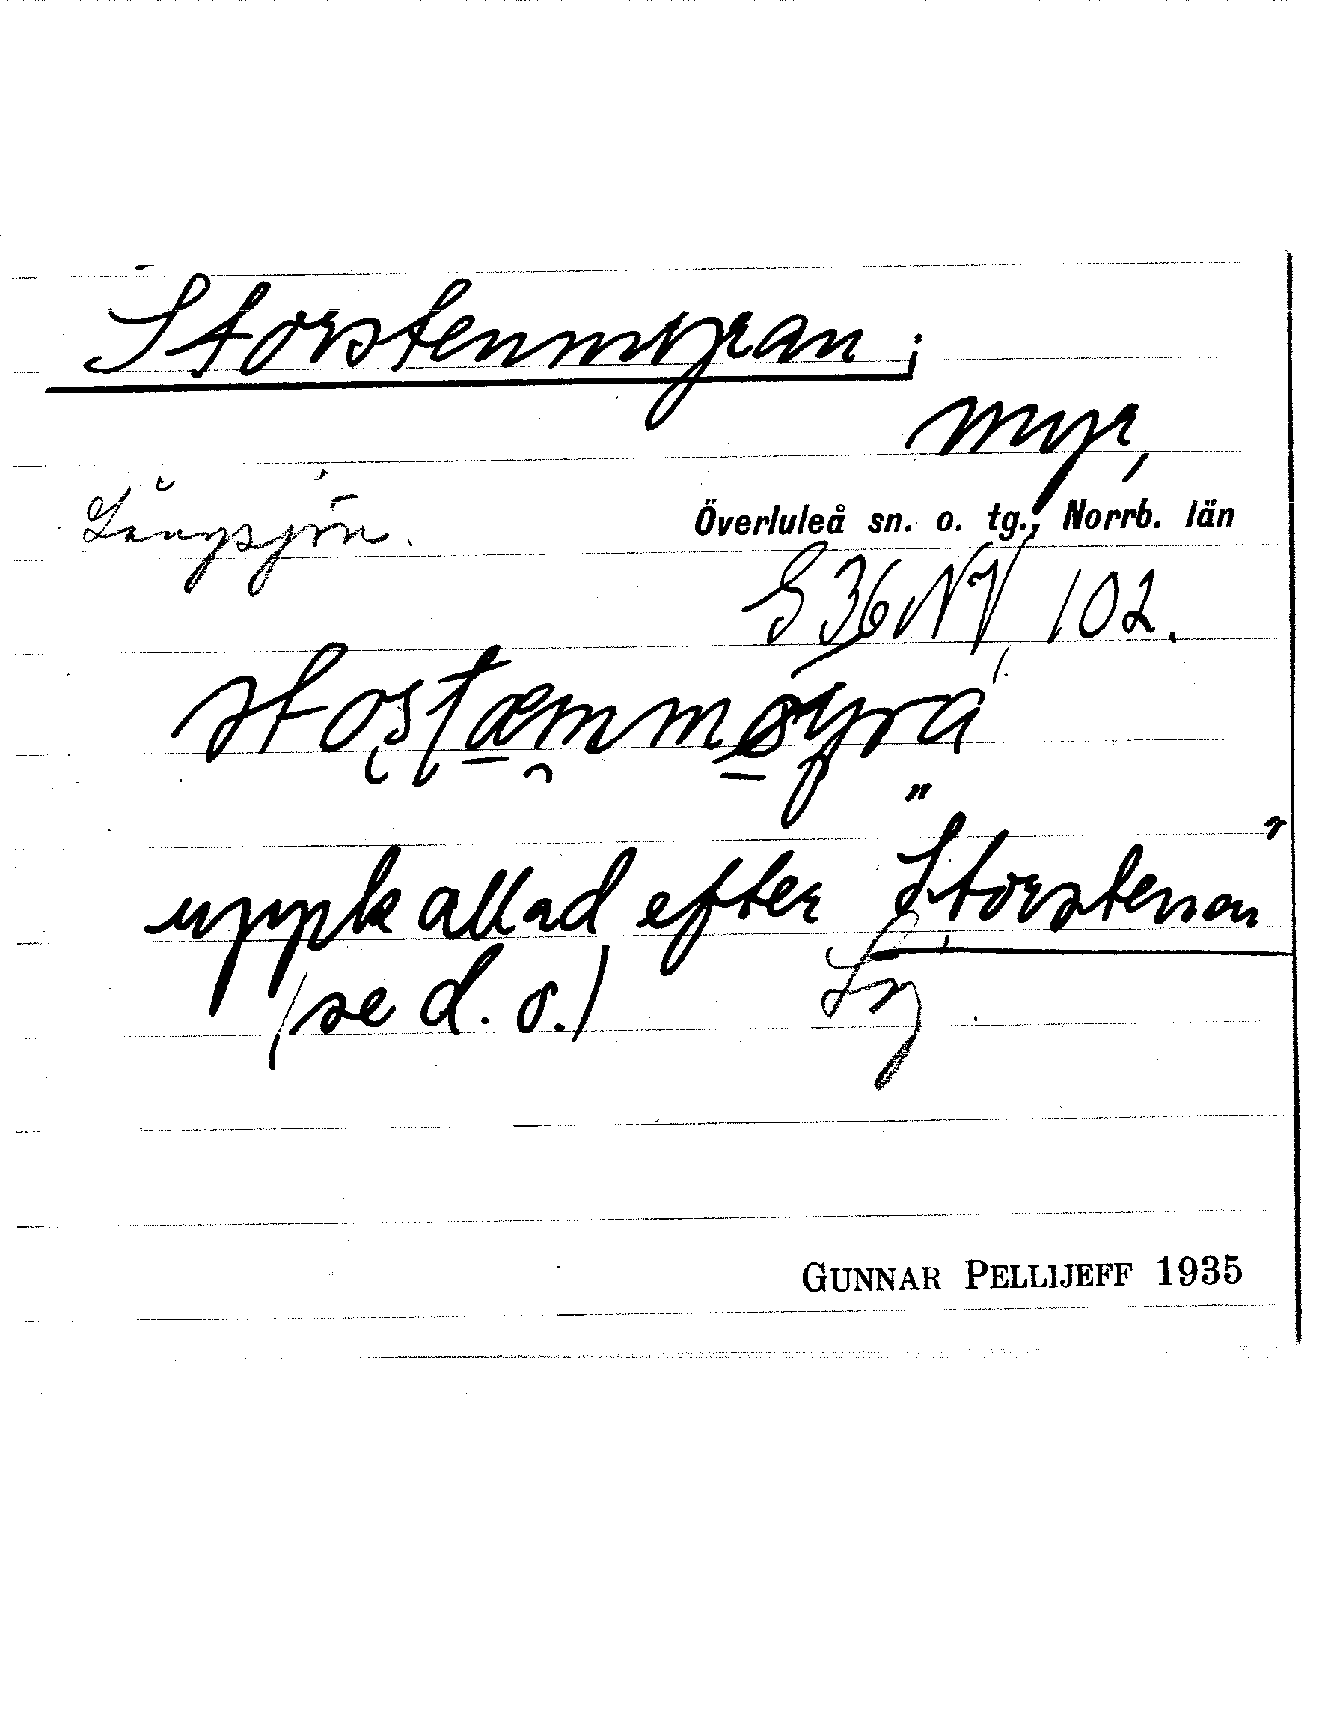 Storstenmyran;
myr,
Långsjön.
Överluleå sn. o. tg., Norrb. län
S 36 NV, 102.
uppkallad efter "Storstenen"
(se d. o.)
GUNNAR PELLIJEFF 1935